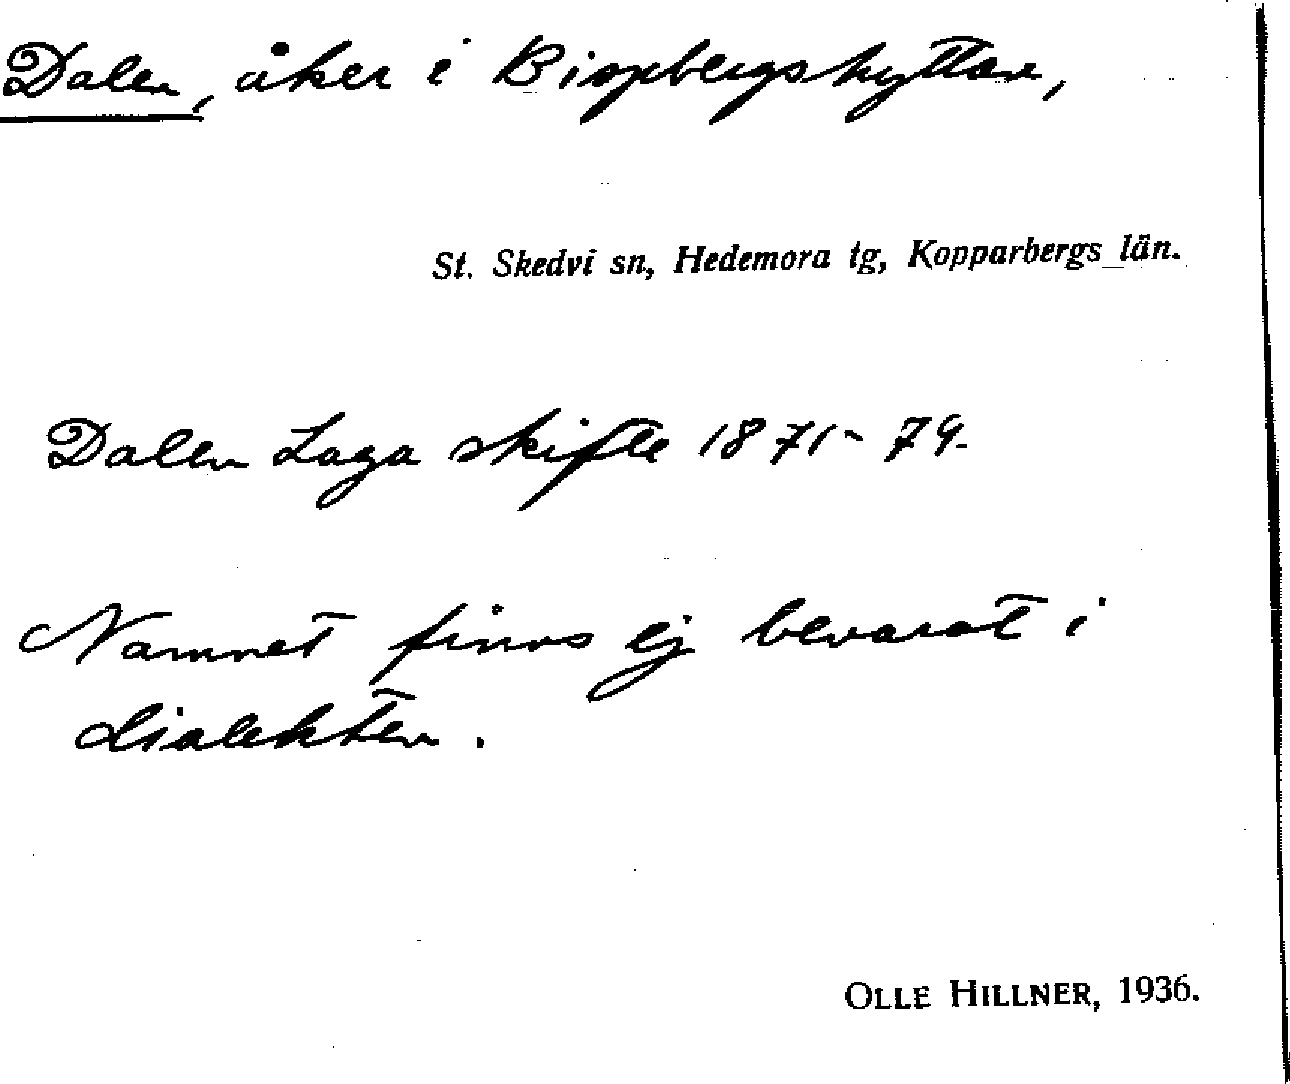 Dalen, åker i Bispbergshyttan,
St. Skedvi sn, Hedemora tg, Kopparbergs län.
Dalen Laga skifte 1871-79.
Namnet finns ej bevarat i
dialekten.
OLLE HILLNER, 1936.